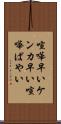 喧嘩早いケ
ンカ早い喧
嘩ばやい